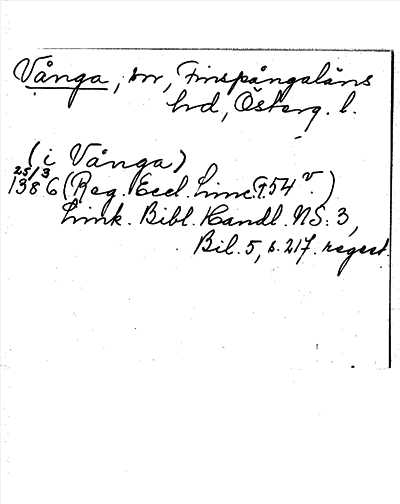 Vånga, sn, Finspångaläns
hd, Österg. l.
(i Vånga)
25/3
1386 (Reg. Eccl. Linc. f. 54 v.)
Link. Bibl. Handl. NS: 3,
Bil. 5, s. 217. regest.